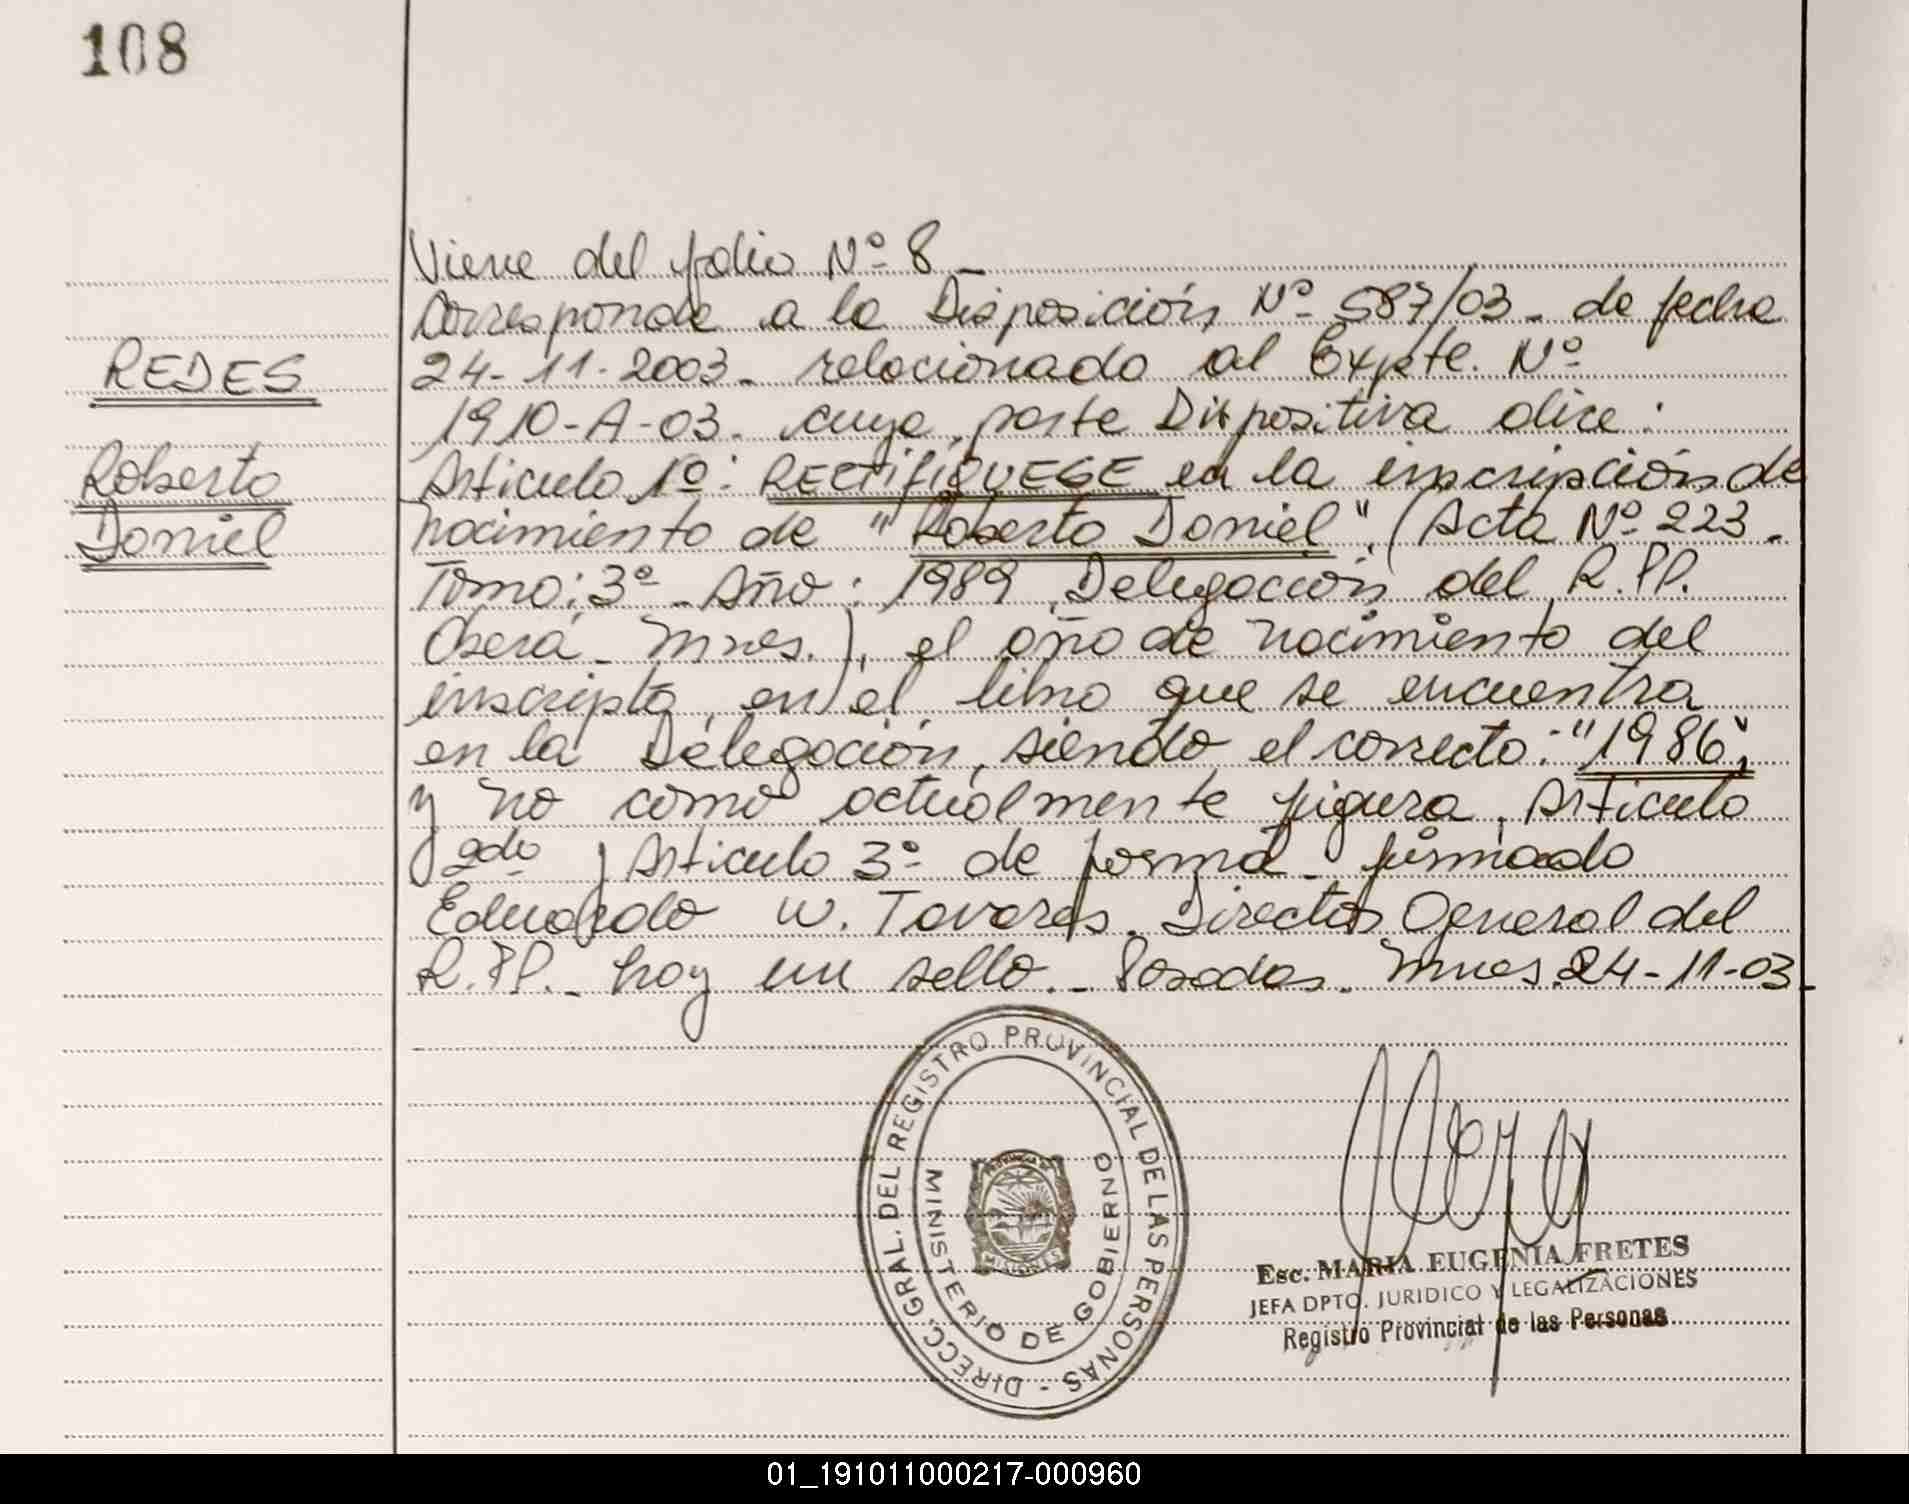 108
Viene del folio Nº 8 -
Corresponde a la Disposición Nº 587/03 - de fecha
REDES
24-11-2003 - relacionado al Expte. Nº
1910-A-03. cuya parte Dispositiva dice:
Roberto
Daniel
Articulo 1º: RECTIFIQUESE en la inscripción de
nacimiento de "Roberto Daniel", (Acta Nº 223 -
Tomo: 3º - Año: 1989, Delegación del R.PP.
Oberá - Mnes.), el año de nacimiento del
inscripto, en el libro que se encuentra
en la Delegación, siendo el correcto: "1986",
y no como actualmente figura. Articulo
2do y Articulo 3º de forma - firmado
Eduardo W. Tavares. Director General del
R.PP. - hay un sello. - Posadas. Mnes. 24-11-03 -
DIRECC. GRAL. DEL REGISTRO PROVINCIAL DE LAS PERSONAS -
MINISTERIO DE GOBIERNO
PROVINCIA DE
MISIONES
Esc. MARIA EUGENIA FRETES
JEFA DPTO. JURIDICO Y LEGALIZACIONES
Registro Provincial de las Personas
01_191011000217-000960